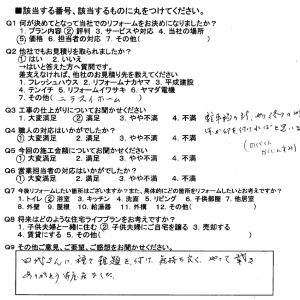 ■該当する番号、該当するものに丸をつけてください。
Q1 何が決めてとなって当社でのリフォームをお決めになりましたか?
1. プラン内容 ②評判 3. サービスや対応 4. 当社の場所
⑤価格 6. 担当者の対応 7. その他( )
Q2 他社でもお見積りを取られましたか?
①はい 2. いいえ
→はいと答えた方へ質問です。
差支えなければ、他社のお見積り先を教えてください
1. フレッシュハウス 2. リフォームナカヤマ 3. 平成建設
4. テンイチ 5. リフォームイワサキ 6. ヤマダ電機
7. その他( ホーム )
Q3 工事の仕上がりについてお聞かせください
1. 大変満足 ②満足 3. やや不満 4. 不満
Q4 職人の対応はいかがでしたか?
①大変満足 2. 満足 3. やや不満 4. 不満
Q5 今回の施工金額についてお聞かせください
1. 大変満足 ②満足 3. やや不満 4. 不満
Q6 営業担当者の対応はいかがでしたか?
①大変満足 2. 満足 3. やや不満 4. 不満
Q7 今後リフォームしたい箇所はございますか?また、具体的にどの箇所をリフォームしたいとお考えですか?
1. トイレ ②浴室 3. キッチン 4. 洗面 5. リビング 6. 子供部屋 7. 他居室
8. 外壁 9. 屋根 10. 給湯器 11. 外構 12. その他( )
Q8 将来はどのような住宅ライフプランをお考えですか?
1. 子供夫婦と一緒に住む ②子供夫婦にご自宅を譲る 3. 売却する
4. 賃貸にする 5. その他( )
Q9 その他ご意見、ご要望、ご感想をお聞かせください。
さんに 気持ち良く やって 頂き
ありがとう